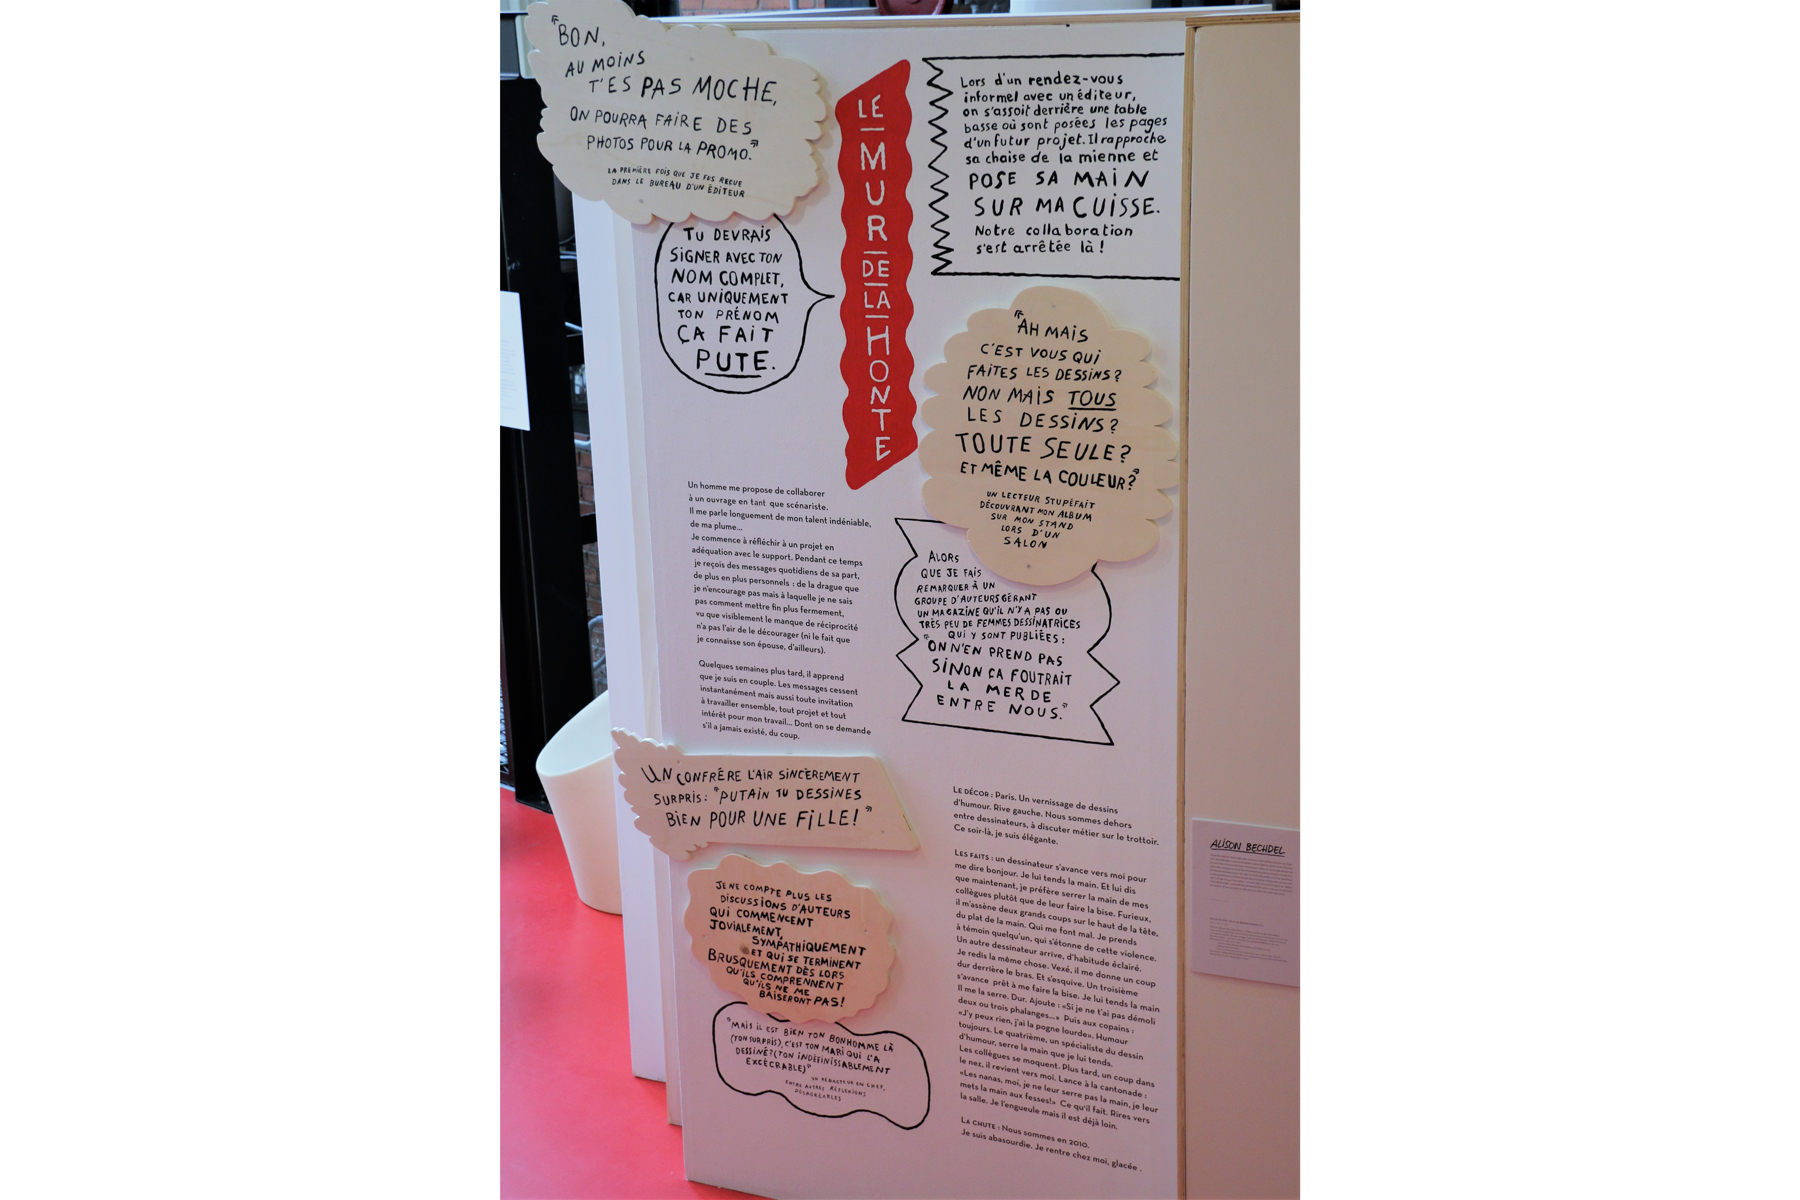 "BON,
AU MOINS
T'ES PAS MOCHE,
ON POURRA FAIRE DES
PHOTOS POUR LA PROMO."
LA PREMIÈRE FOIS QUE JE FUS REÇUE
DANS LE BUREAU D'UN ÉDITEUR
TU DEVRAIS
SIGNER AVEC TON
NOM COMPLET,
CAR UNIQUEMENT
TON PRÉNOM
ÇA FAIT
PUTE.
LE
MUR
DE
LA
HONTE
Lors d'un rendez-vous
informel avec un éditeur,
on s'assoit derrière une table
basse où sont posées les pages
d'un futur projet. Il rapproche
sa chaise de la mienne et
POSE SA MAIN
SUR MA CUISSE.
Notre collaboration
s'est arrêtée là !
"AH MAIS
C'EST VOUS QUI
FAITES LES DESSINS ?
NON MAIS TOUS
LES DESSINS ?
TOUTE SEULE ?
ET MÊME LA COULEUR ?"
UN LECTEUR STUPÉFAIT
DÉCOUVRANT MON ALBUM
SUR MON STAND
LORS D'UN
SALON
Un homme me propose de collaborer
à un ouvrage en tant que scénariste.
Il me parle longuement de mon talent indéniable,
de ma plume...
Je commence à réfléchir à un projet en
adéquation avec le support. Pendant ce temps
je reçois des messages quotidiens de sa part,
de plus en plus personnels : de la drague que
je n'encourage pas mais à laquelle je ne sais
pas comment mettre fin plus fermement,
vu que visiblement le manque de réciprocité
n'a pas l'air de le décourager (ni le fait que
je connaisse son épouse, d'ailleurs).
Quelques semaines plus tard, il apprend
que je suis en couple. Les messages cessent
instantanément mais aussi toute invitation
à travailler ensemble, tout projet et tout
intérêt pour mon travail... Dont on se demande
s'il a jamais existé, du coup.
ALORS
QUE JE FAIS
REMARQUER À UN
GROUPE D'AUTEURS GÉRANT
UN MAGAZINE QU'IL N'Y A PAS OU
TRÈS PEU DE FEMMES DESSINATRICES
QUI Y SONT PUBLIÉES :
"ON N'EN PREND PAS
SINON ÇA FOUTRAIT
LA MERDE
ENTRE NOUS."
UN CONFRÈRE L'AIR SINCÈREMENT
SURPRIS : "PUTAIN TU DESSINES
BIEN POUR UNE FILLE !"
JE NE COMPTE PLUS LES
DISCUSSIONS D'AUTEURS
QUI COMMENCENT
JOVIALEMENT,
SYMPATHIQUEMENT
ET QUI SE TERMINENT
BRUSQUEMENT DÈS LORS
QU'ILS COMPRENNENT
QU'ILS NE ME
BAISERONT PAS !
"MAIS IL EST BIEN TON BONHOMME LÀ
(TON SURPRIS), C'EST TON MARI QUI L'A
DESSINÉ ? (TON INDÉFINISSABLEMENT
EXÉCRABLE)"
UN RÉDACTEUR EN CHEF,
ENTRE AUTRES RÉFLEXIONS
DÉSAGRÉABLES
LE DÉCOR : Paris. Un vernissage de dessins
d'humour. Rive gauche. Nous sommes dehors
entre dessinateurs, à discuter métier sur le trottoir.
Ce soir-là, je suis élégante.
LES FAITS : un dessinateur s'avance vers moi pour
me dire bonjour. Je lui tends la main. Et lui dis
que maintenant, je préfère serrer la main de mes
collègues plutôt que de leur faire la bise. Furieux,
il m'assène deux grands coups sur le haut de la tête,
du plat de la main. Qui me font mal. Je prends
à témoin quelqu'un, qui s'étonne de cette violence.
Un autre dessinateur arrive, d'habitude éclairé.
Je redis la même chose. Vexé, il me donne un coup
dur derrière le bras. Et s'esquive. Un troisième
s'avance prêt à me faire la bise. Je lui tends la main
Il me la serre. Dur. Ajoute : «Si je ne t'ai pas démoli
deux ou trois phalanges...» Puis aux copains :
«J'y peux rien, j'ai la pogne lourde». Humour
toujours. Le quatrième, un spécialiste du dessin
d'humour, serre la main que je lui tends.
Les collègues se moquent. Plus tard, un coup dans
le nez, il revient vers moi. Lance à la cantonade :
«Les nanas, moi, je ne leur serre pas la main, je leur
mets la main aux fesses!» Ce qu'il fait. Rires vers
la salle. Je l'engueule mais il est déjà loin.
LA CHUTE : Nous sommes en 2010.
Je suis abasourdie. Je rentre chez moi, glacée .
ALISON BECHDEL